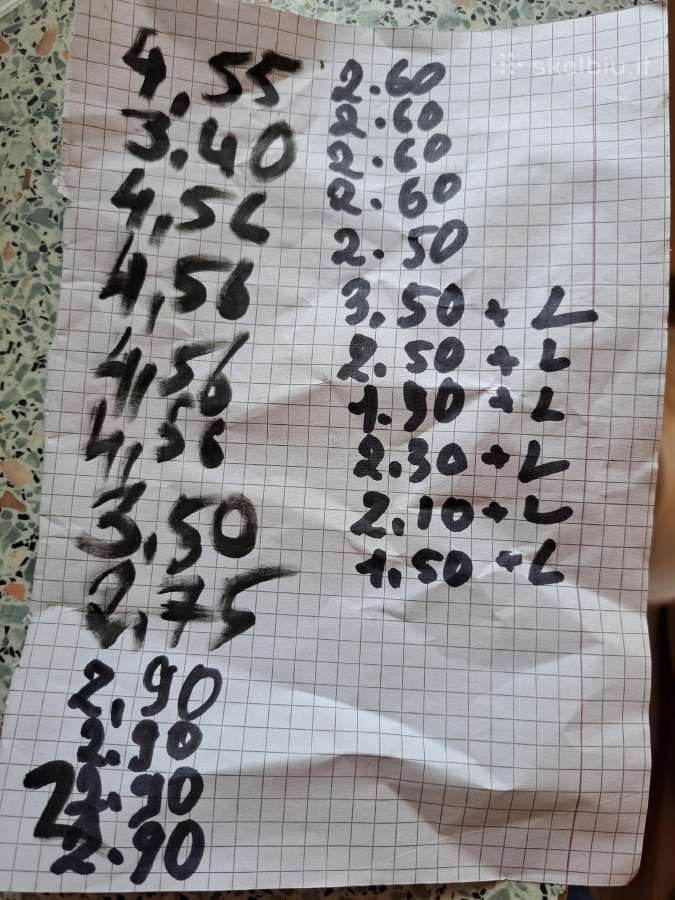 4,55
3.40
4,56
4,56
4,56
4,56
3,50
2,75
2,90
2.90
2.90
2
2.90
skelbiu.lt
2.60
2.60
2.60
2.60
2.50
3.50 + L
2.50 + L
1.90 + L
2.30 + L
2.10 + L
1.50 + L